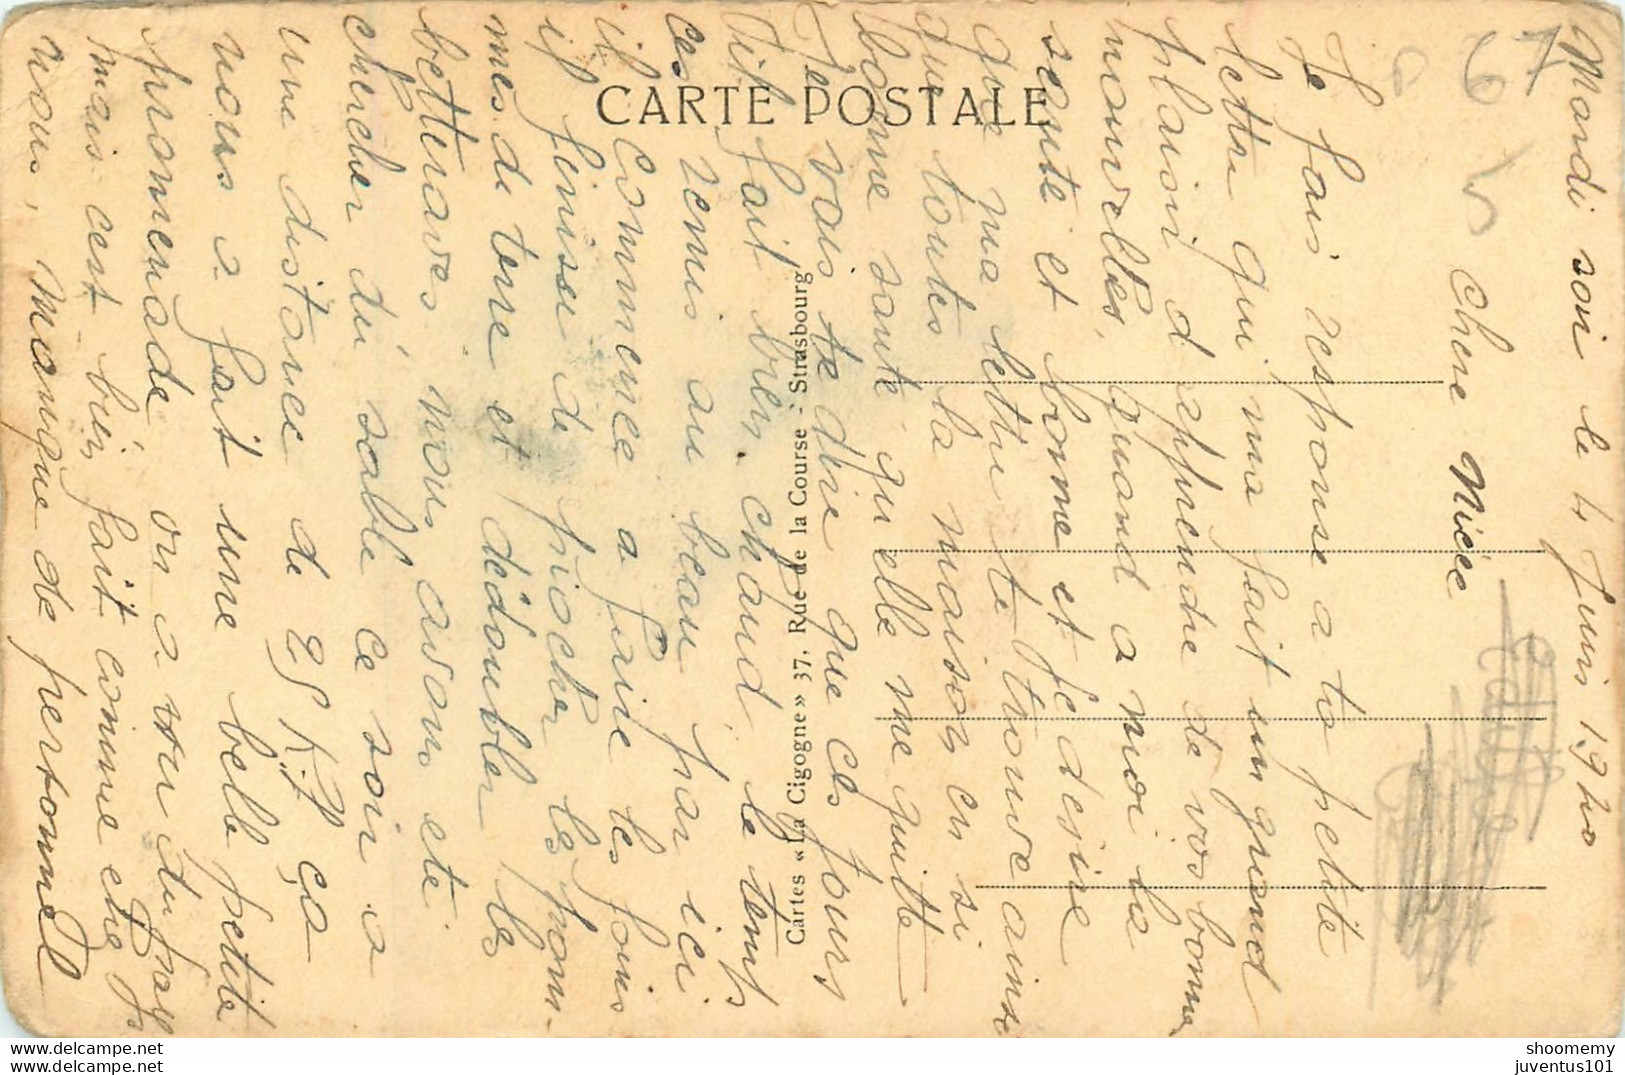 Mardi soir le 4 Juin 1940
Chere Nièce
Je fais response a ta petite
lettre qui ma fait un grand
plaisir d apprendre de vos bonne
nouvelles, quand a moi la
sente et bonne et je desire
que ma lettre te trouve ainsi
que toutes la maison en si
bonne santé qu elle me quitte
Je vais te dire que ces jours
il fait bien chaud, le temps
ces remis au beau par ici
il commence a faire les foins
il finisse de piocher les pom-
mes de terre et dédoubler les
betteraves nous avons eté
chercher du sable ce soir a
une distance de 25 K. ça
nous a fait une belle petite
promenade, on a vu du pays
mais cest bien fait comme chez
nous, manque de personnel
CARTE POSTALE
Cartes « La Cigogne » 37, Rue de la Course - Strasbourg
67
shoomemy
juventus101